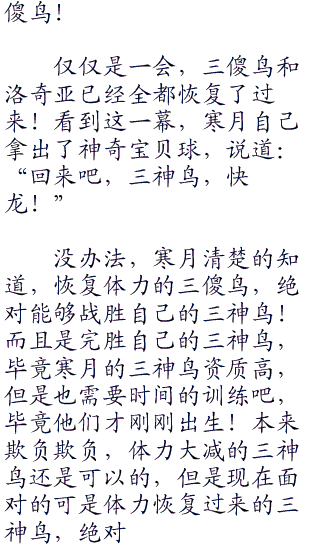 傻鸟！
仅仅是一会，三傻鸟和
洛奇亚已经全都恢复了过
来！看到这一幕，寒月自己
拿出了神奇宝贝球，说道：
“回来吧，三神鸟，快
龙！”
没办法，寒月清楚的知
道，恢复体力的三傻鸟，绝
对能够战胜自己的三神鸟！
而且是完胜自己的三神鸟，
毕竟寒月的三神鸟资质高，
但是也需要时间的训练吧，
毕竟他们才刚刚出生！本来
欺负欺负，体力大减的三神
鸟还是可以的，但是现在面
对的可是体力恢复过来的三
神鸟，绝对